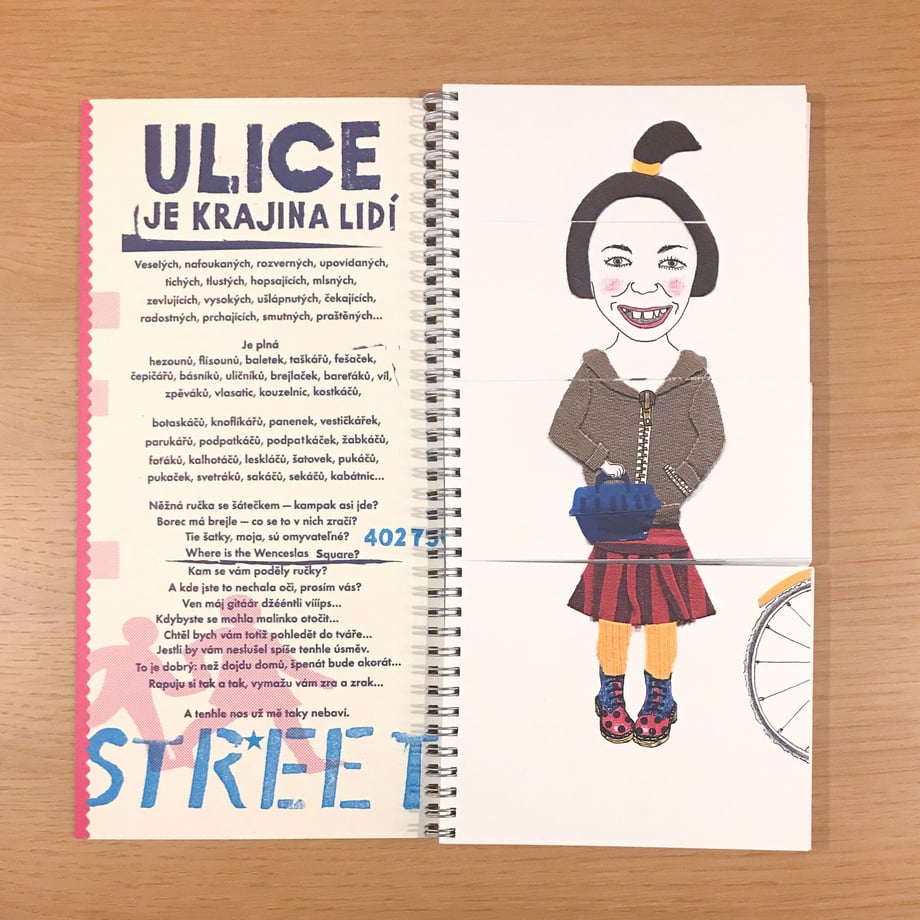 ULICE
JE KRAJINA LIDÍ
Veselých, nafoukaných, rozverných, upovídaných,
tichých, tlustých, hopsajících, mlsných,
zevlujících, vysokých, ušlápnutých, čekajících,
radostných, prchajících, smutných, praštěných...
Je plná
hezounů, flísounů, baletek, taškářů, fešaček,
čepičářů, básníků, uličníků, brejlaček, bareťáků, víl,
zpěváků, vlasatic, kouzelnic, kostkáčů,
botaskáčů, knoflíkářů, panenek, vestičkářek,
parukářů, podpatkáčů, podpatkáček, žabkáčů,
foťáků, kalhotáčů, leskláčů, šatovek, pukáčů,
pukaček, svetráků, sakáčů, sekáčů, kabátnic...
Něžná ručka se šátečkem — kampak asi jde?
Borec má brejle — co se to v nich zračí?
Tie šatky, moja, sú omyvateľné?
4027
Where is the Wenceslas Square?
Kam se vám poděly ručky?
A kde jste to nechala oči, prosím vás?
Ven máj gitáár džééntli víiips...
Kdybyste se mohla malinko otočit...
Chtěl bych vám totiž pohledět do tváře...
Jestli by vám neslušel spíše tenhle úsměv.
To je dobrý: než dojdu domů, špenát bude akorát...
Rapuju si tak a tak, vymažu vám zra a zrak...
A tenhle nos už mě taky nebaví.
STREET